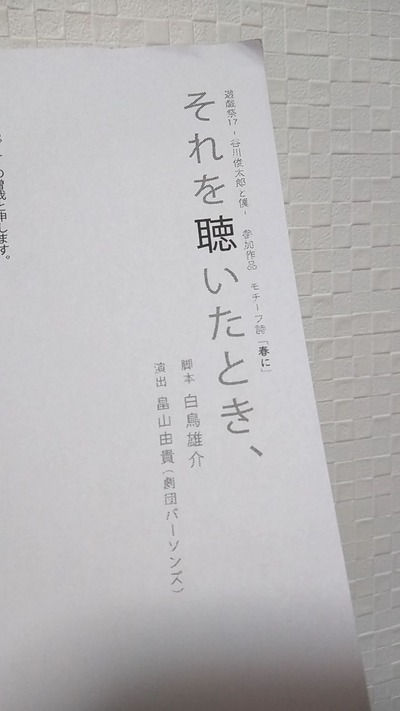 遊戯祭17 -谷川俊太郎と僕- 参加作品 モチーフ詩「春に」
それを聴いたとき、
脚本 白鳥雄介
演出 畠山由貴(劇団パーソンズ)
と申します。